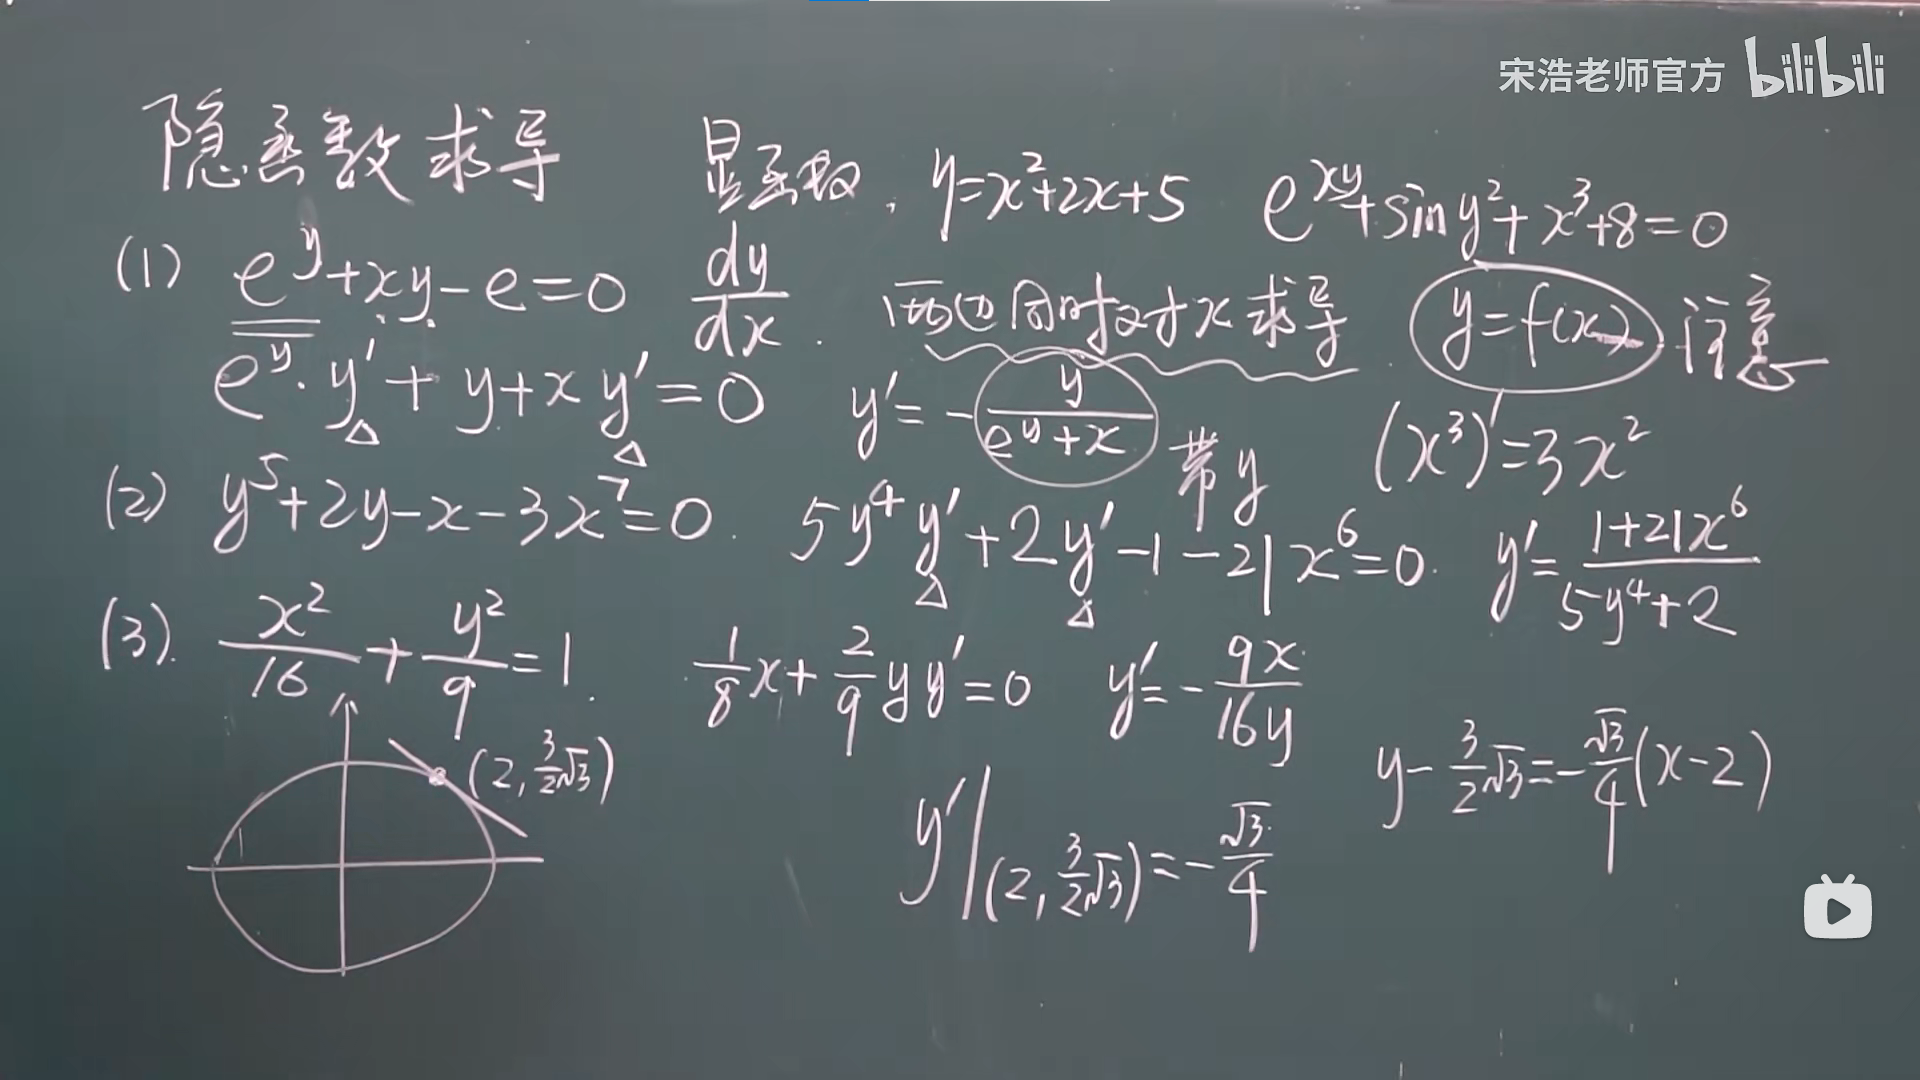 宋浩老师官方 bilibili
隐函数求导 显函数. y=x²+2x+5 e^{xy}+sin y²+x³+8=0
(1) e^y+xy-e=0 dy/dx. 两边同时对x求导. y=f(x). 注意
e^y·y'+y+xy'=0 y'=-y/(e^y+x) 带y (x³)'=3x²
(2) y⁵+2y-x-3x⁷=0. 5y⁴y'+2y'-1-21x⁶=0. y'=(1+21x⁶)/(5y⁴+2)
(3). x²/16+y²/9=1. 1/8x+2/9yy'=0 y'=-9x/16y
(2, 3/2√3) y'|(2, 3/2√3)=-√3/4 y-3/2√3=-√3/4(x-2)